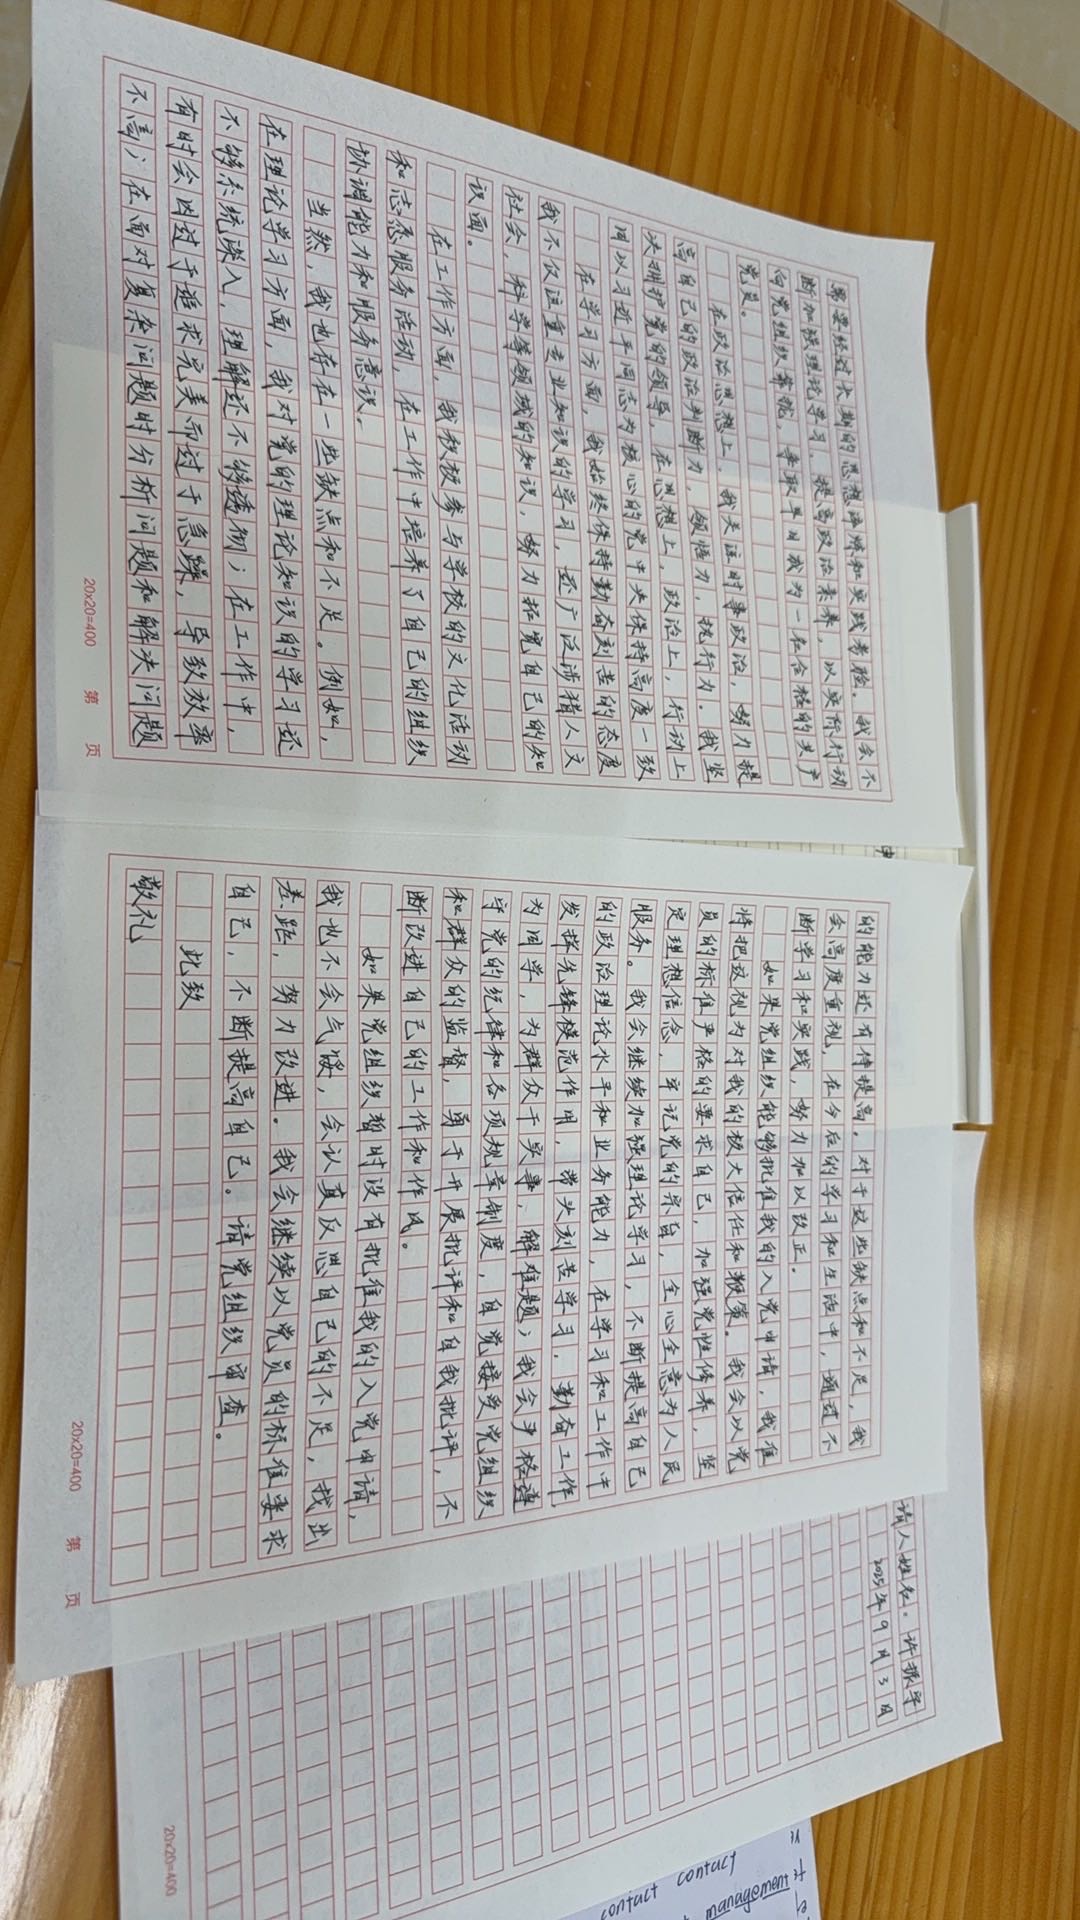 累要经过长期的思想淬炼和实践考验。我会不
断加强理论学习，提高政治素养，以实际行动
向党组织靠拢，争取早日成为一名合格的共产
党员。
在政治思想上，我关注时事政治，努力提
高自己的政治判断力，领悟力，执行力。我坚
决拥护党的领导，在思想上，政治上，行动上
同以习近平同志为核心的党中央保持高度一致
在学习方面，我始终保持勤奋刻苦的态度
我不仅注重专业知识的学习，还广泛涉猎人文
社会，科学等领域的知识，努力拓宽自己的知
识面。
在工作方面，我积极参与学校的文化活动
和志愿服务活动，在工作中培养了自己的组织
协调能力和服务意识。
当然，我也存在一些缺点和不足。例如，
在理论学习方面，我对党的理论知识的学习还
不够系统深入，理解还不够透彻；在工作中，
有时会因过于追求完美而过于急躁，导致效率
不高；在面对复杂问题时分析问题和解决问题
20x20=400 第 页
的能力还有待提高。对于这些缺点和不足，我
会高度重视，在今后的学习和生活中，通过不
断学习和实践，努力加以改正。
如果党组织能够批准我的入党申请，我准
将把这视为对我的极大信任和鞭策。我会以党
员的标准严格的要求自己，加强党性修养，坚
定理想信念，牢记党的宗旨，全心全意为人民
服务。我会继续加强理论学习，不断提高自己
的政治理论水平和业务能力，在学习和工作中
发挥先锋模范作用，带头刻苦学习，勤奋工作，
为同学，为群众干实事，解难题；我会严格遵
守党的纪律和各项规章制度，自觉接受党组织
和群众的监督，勇于开展批评和自我批评，不
断改进自己的工作和作风。
如果党组织暂时没有批准我的入党申请，
我也不会气馁，会认真反思自己的不足，找出
差距，努力改进。我会继续以党员的标准要求
自己，不断提高自己。请党组织审查。
此致
敬礼
20x20=400 第 页
请人姓名：许振宇
2025年9月3日
20x20=400
contact contact
management